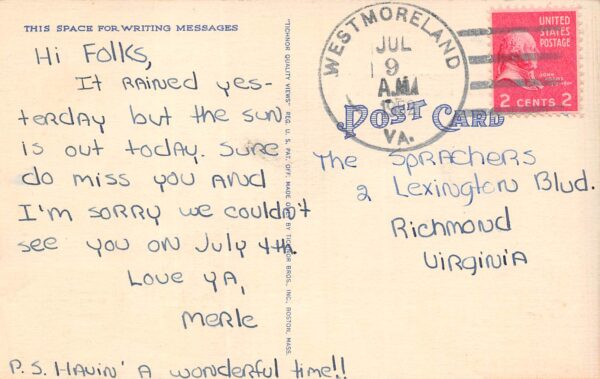 THIS SPACE FOR WRITING MESSAGES
Hi Folks,
It rained yes-
terday but the sun
is out today. Sure
do miss you and
I'm sorry we couldn't
see you on July 4th.
Love ya,
Merle
P.S. Havin' a wonderful time!!
"TICHNOR QUALITY VIEWS" REG. U. S. PAT. OFF. MADE ONLY BY TICHNOR BROS., INC., BOSTON, MASS.
WESTMORELAND
JUL
9
A.M.
VA.
UNITED
STATES
POSTAGE
JOHN
2 CENTS 2
POST CARD
The Sprachers
2 Lexington Blvd.
Richmond
Virginia